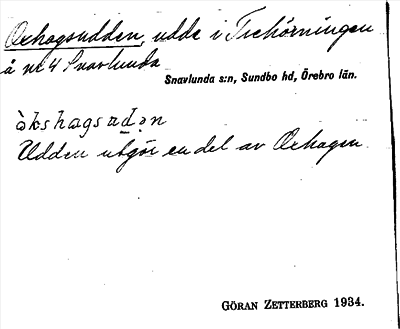 Oxhagsudden, udde i Trehörningen
å nr 4 Snavlunda
Snavlunda s:n, Sundbo hd, Örebro län.
òkshagsud̲ən
Udden utgör en del av Oxhagen.
GÖRAN ZETTERBERG 1934.